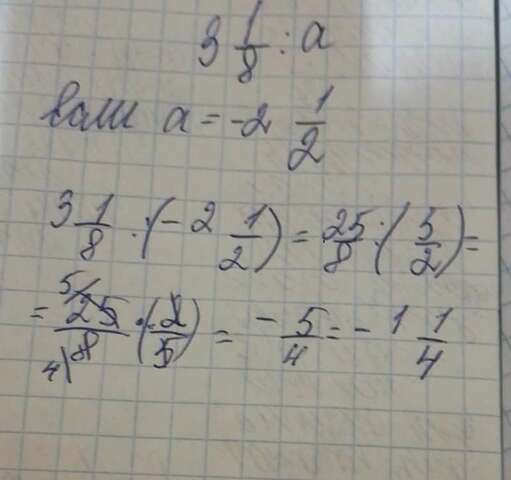 3 1/8 : a
если a = -2 1/2
3 1/8 : (-2 1/2) = 25/8 : (5/2) =
= 25/8 · (-2/5) = -5/4 = -1 1/4